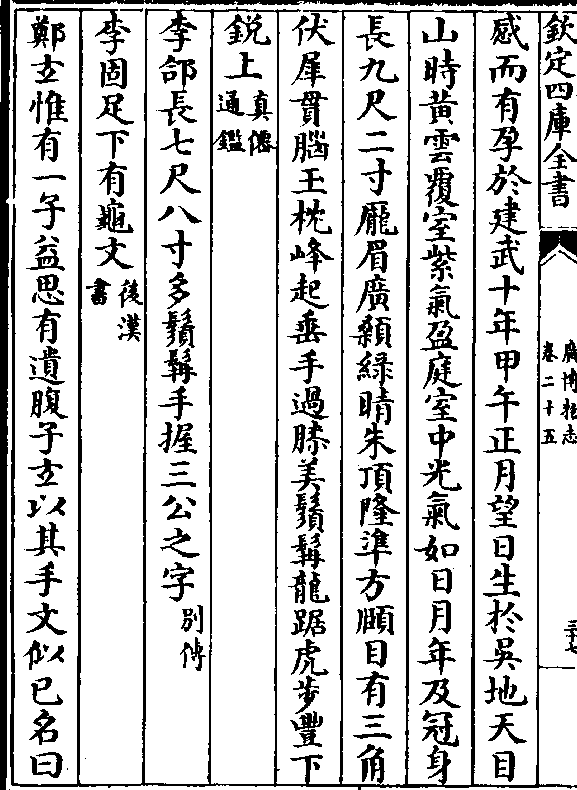 欽定四庫全書
廣博物志
卷二十五
感而有孕於建武十年甲午正月望日生於吳地天目
山時黃雲覆室紫氣盈庭室中光氣如日月年及冠身
長九尺二寸厖眉廣顙綠晴朱頂隆準方頤目有三角
伏犀貫腦玉枕峰起垂手過膝美鬚髯龍踞虎步豐下
鋭上真僊通鑑
李郃長七尺八寸多鬚髯手握三公之字別傳
李固足下有龜文後漢書
鄭玄惟有一子益思有遺腹子玄以其手文似已名曰